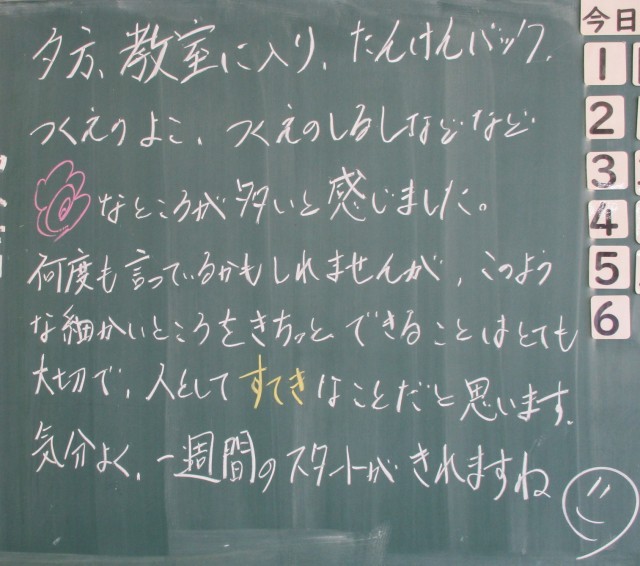 夕方、教室に入り、たんけんバック、
つくえのよこ、つくえのしるしなどなど
なところが多いと感じました。
何度も言っているかもしれませんが、このよう
な細かいところをきちっとできることはとても
大切で、人としてすてきなことだと思います。
気分よく、一週間のスタートがきれますね
今日
1
2
3
4
5
6